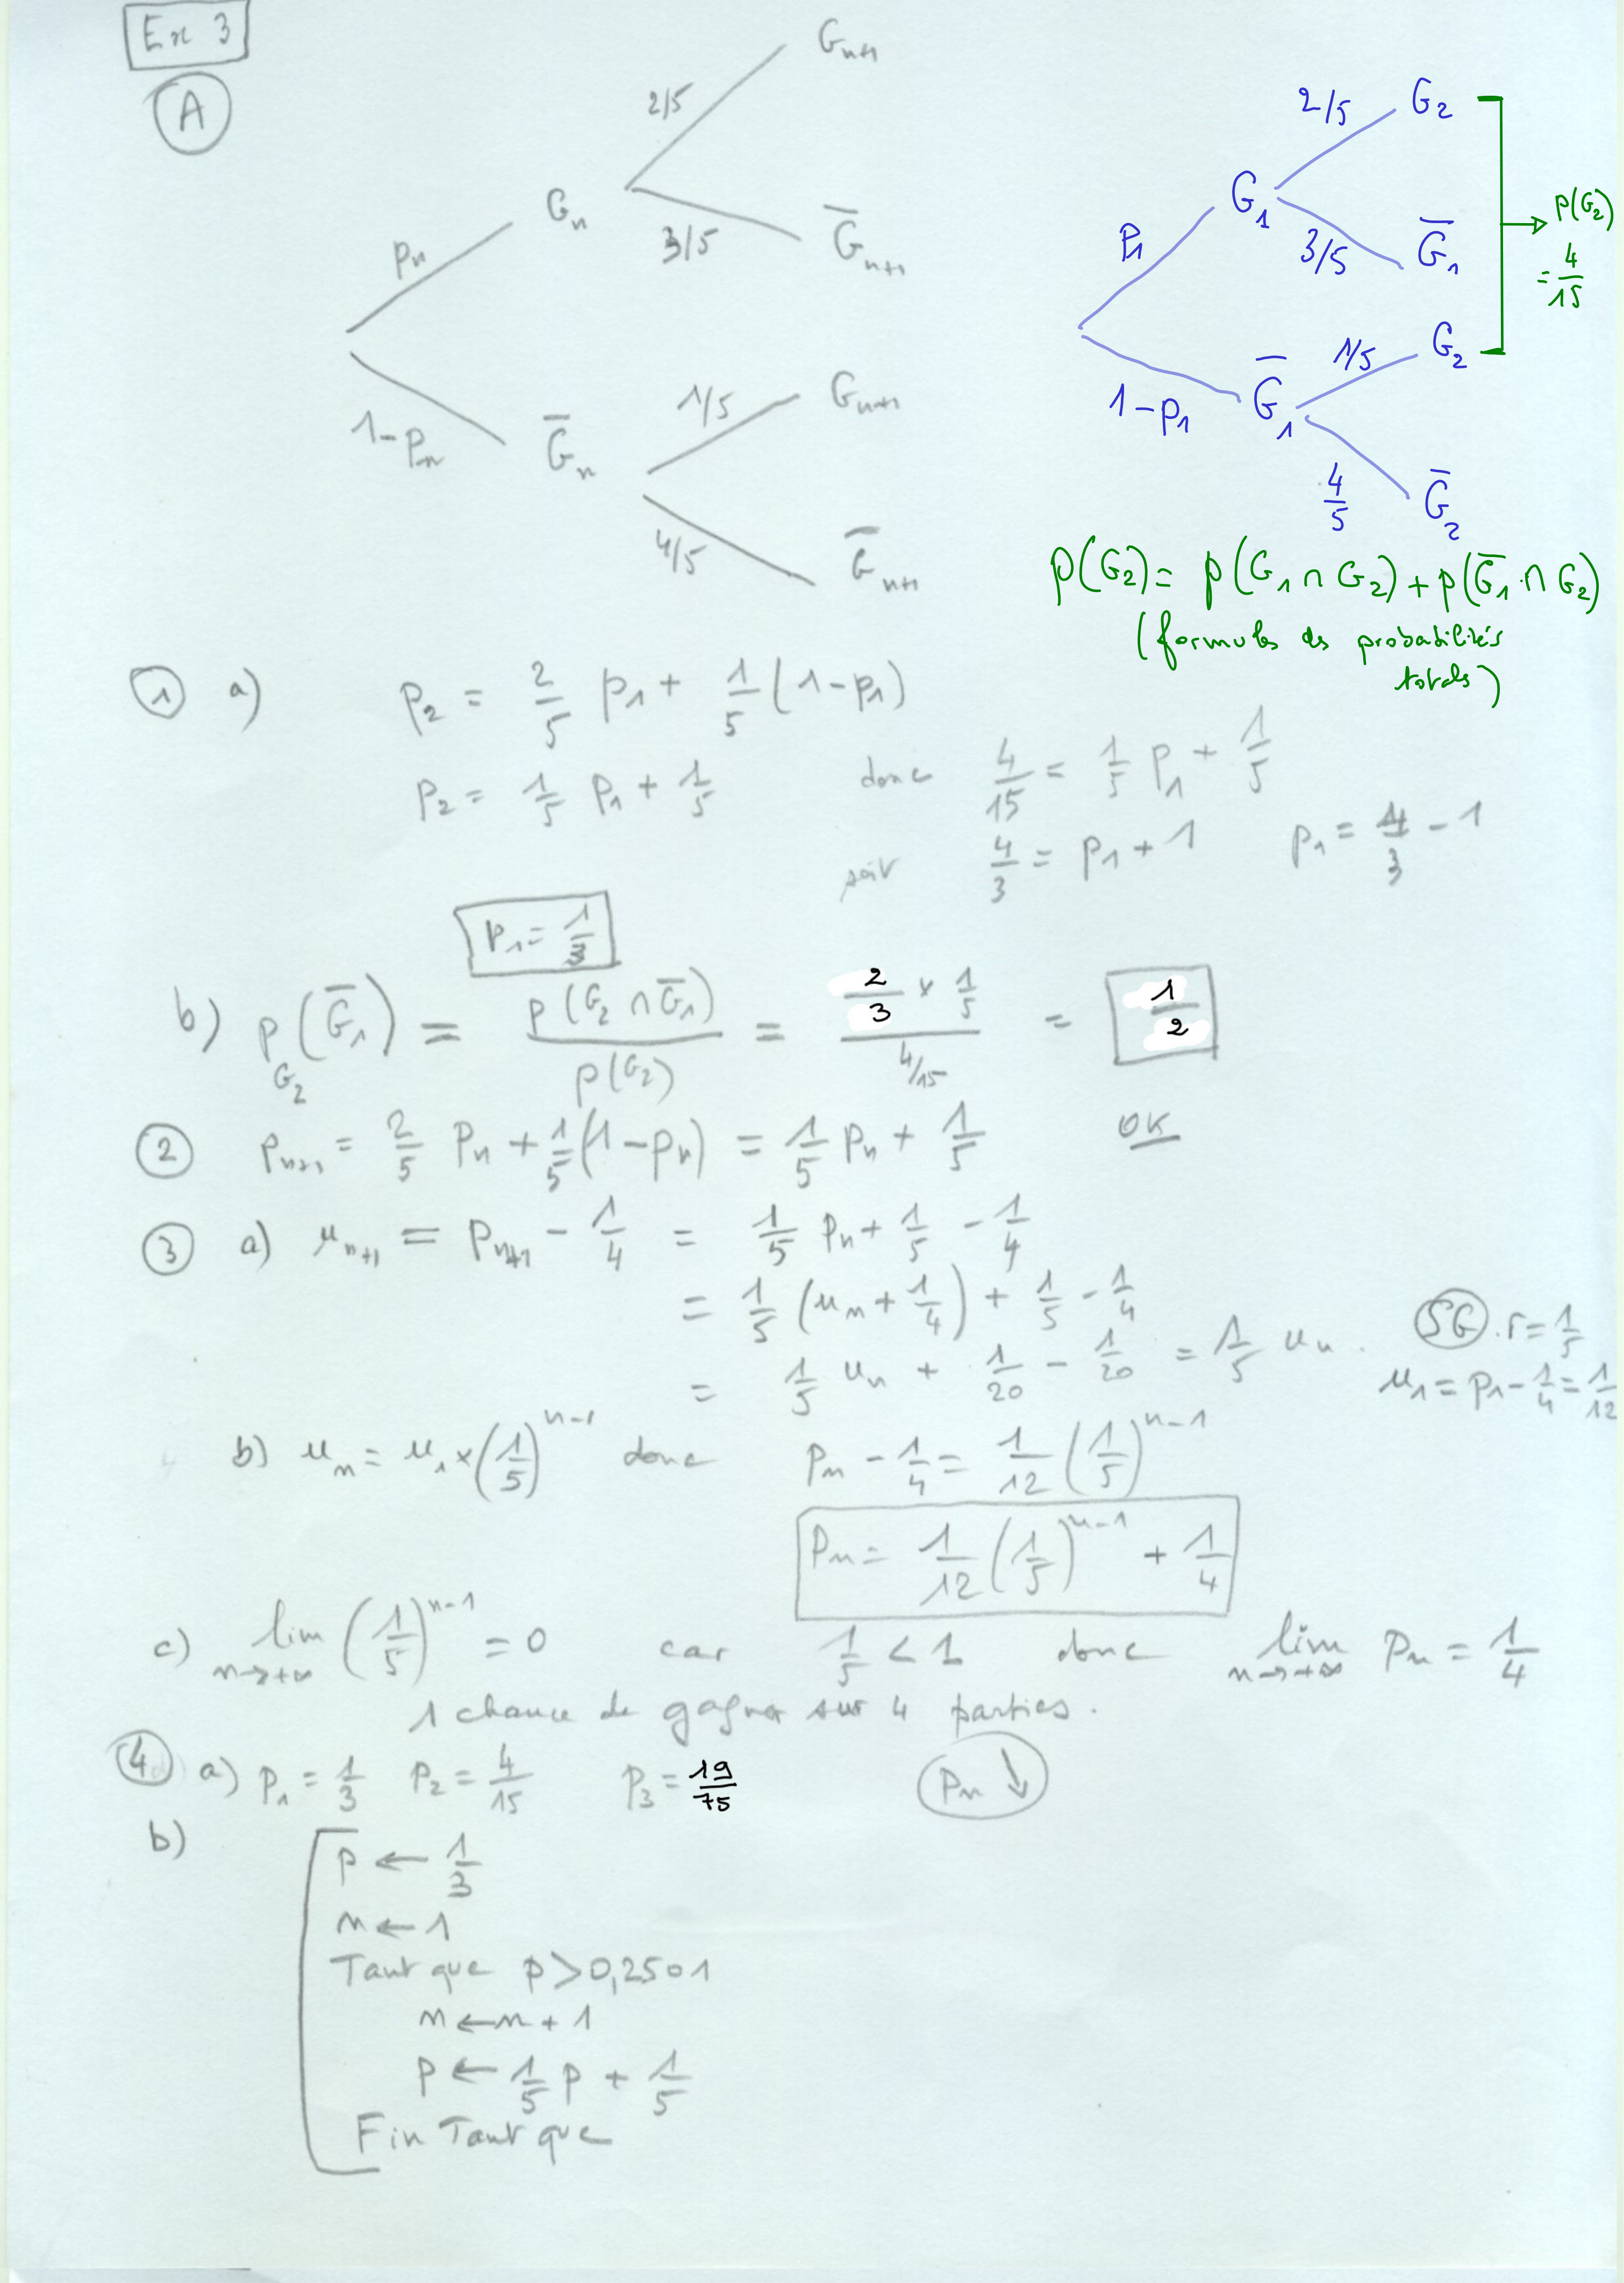 Ex 3
A
pn
1-pn
Gn
G̅n
2/5
3/5
1/5
4/5
Gn+1
G̅n+1
Gn+1
G̅n+1
P1
1-p1
G1
G̅1
2/5
3/5
1/5
4/5
G2
G̅1
G2
G̅2
p(G2)
= 4/15
p(G2) = p(G1 ∩ G2) + p(G̅1 ∩ G2)
(formules des probabilités
totales)
1 a) p2 = 2/5 p1 + 1/5 (1-p1)
p2 = 1/5 p1 + 1/5 donc 4/15 = 1/5 p1 + 1/5
soit 4/3 = p1 + 1 p1 = 4/3 - 1
p1 = 1/3
b) pG2(G̅1) = p(G2 ∩ G̅1)/p(G2) = (2/3 × 1/5)/(4/15) = 1/2
2 pn+1 = 2/5 pn + 1/5 (1-pn) = 1/5 pn + 1/5 OK
3 a) un+1 = pn+1 - 1/4 = 1/5 pn + 1/5 - 1/4
= 1/5 (un + 1/4) + 1/5 - 1/4
= 1/5 un + 1/20 - 1/20 = 1/5 un . SG . r = 1/5
u1 = p1 - 1/4 = 1/12
b) un = u1 × (1/5)^(n-1) donc pn - 1/4 = 1/12 (1/5)^(n-1)
pn = 1/12 (1/5)^(n-1) + 1/4
c) lim n→+∞ (1/5)^(n-1) = 0 car 1/5 < 1 donc lim n→+∞ pn = 1/4
1 chance de gagner sur 4 parties.
4 a) p1 = 1/3 p2 = 4/15 p3 = 19/75 pn ↓
b)
p ← 1/3
n ← 1
Tant que p > 0,2501
n ← n + 1
p ← 1/5 p + 1/5
Fin Tant que